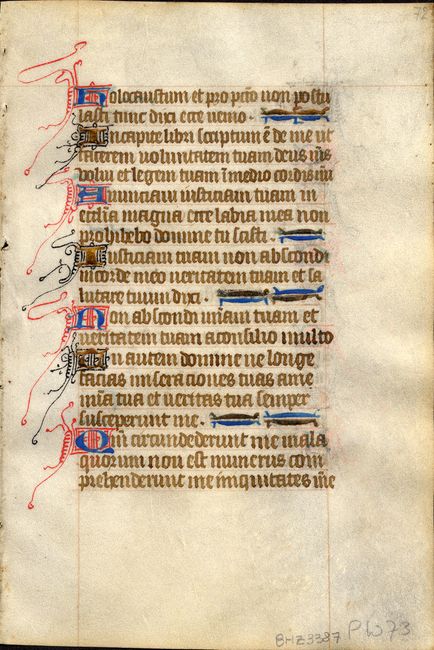 72
Holocaustum et pro pctō non postu
lasti tunc dixi ecce venio.
In capite libri scriptum ē de me ut
facerem voluntatem tuam deus m̄s
volui et legem tuam ī medio cordis m̄i
Annunciavi iusticiam tuam in
ecclīa magna ecce labia mea non
prohibebo domine tu scisti.
Iusticiam tuam non abscondi
in corde meo veritatem tuam et sa
lutare tuum dixi.
Non abscondi m̄iam tuam et
veritatem tuam a consilio multo
Tu autem domine ne longe
facias miseraciones tuas a me
m̄ia tua et veritas tua semper
susceperunt me.
Qm̄ circumdederunt me mala
quorum non est numerus com
prehenderunt me iniquitates m̄e
BHZ3387 PW73